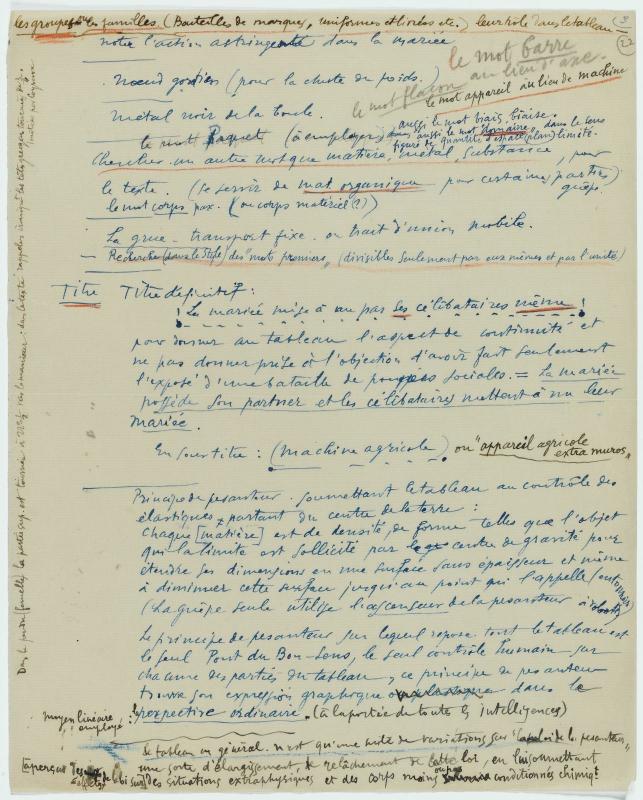 les groupes les familles (Bouteilles de marques, uniformes et livrées etc.) leur rôle dans le tableau
22
noter l'action astringente dans la mariée
le mot barre
au lieu d'axe.
Nœud gordien (pour la chute du poids.)
le mot flacon
le mot appareil au lieu de machine
Métal noir de la boule.
aussi le mot biais, biaise.
aussi le mot domaine, dans le sens
le mot Paquet (à employer)
figuré de quantité d'espace (plan) limité.
Chercher un autre mot que matière, métal, substance, pour
le texte. (Se servir de mat. organique pour certaines parties)
guêpe
le mot corps par. (ou corps matériel (?))
La grue - transport fixe. ou trait d'union mobile.
— Recherche (dans le style) des "mots premiers" (divisibles seulement par eux mêmes et par l'unité)
Titre Titre définitif:
! La mariée mise à nu par ses célibataires même !
pour donner au tableau l'aspect de continuité et
ne pas donner prise à l'objection d'avoir fait seulement
l'exposé d'une bataille de poupées sociales. = La mariée
possède son partner et les célibataires mettent à nu leur
mariée.
En sous titre: (machine agricole) ou "appareil agricole
extra muros"
Principe de pesanteur. Soumettant le tableau au contrôle des
élastiques partant du centre de la terre:
Chaque [matière] est de densité, de forme telles que l'objet
qui la limite est sollicité par le centre de gravité pour
étendre ses dimensions en une surface sans épaisseur et même
à diminuer cette surface jusqu'au point qui l'appelle
(La guêpe seule utilise l'ascenseur de la pesanteur à volonté)
Le principe de pesanteur sur lequel repose tout le tableau est
le seul Pont du Bon-Sens, le seul contrôle humain sur
chacune des parties du tableau, ce principe de pesanteur
trouve son expression graphique dans la
moyen linéaire
employé:
perspective ordinaire. (à la portée de toutes les intelligences)
Le tableau en général n'est qu'une suite de variations sur "la loi de la pesanteur"
une sorte d'élargissement, de relâchement de cette loi, en lui soumettant
aperçus
des situations extraphysiques et des corps moins ou pas conditionnés chimiqt